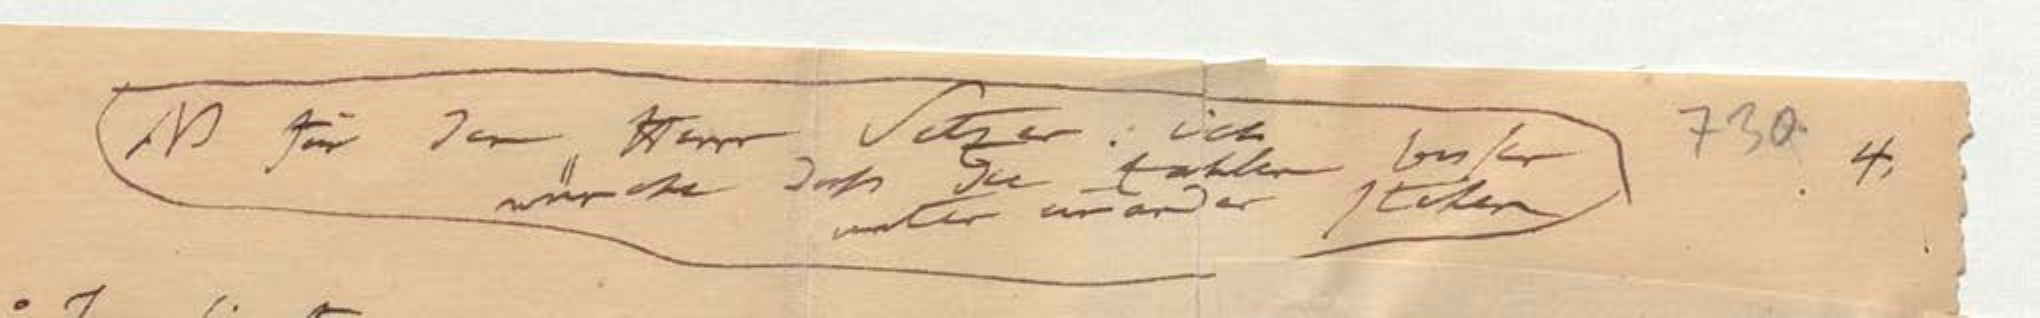 NB für den Herrn Setzer: ich
wünsche dass die Zahlen besser
unter einander stehen
730. 4,